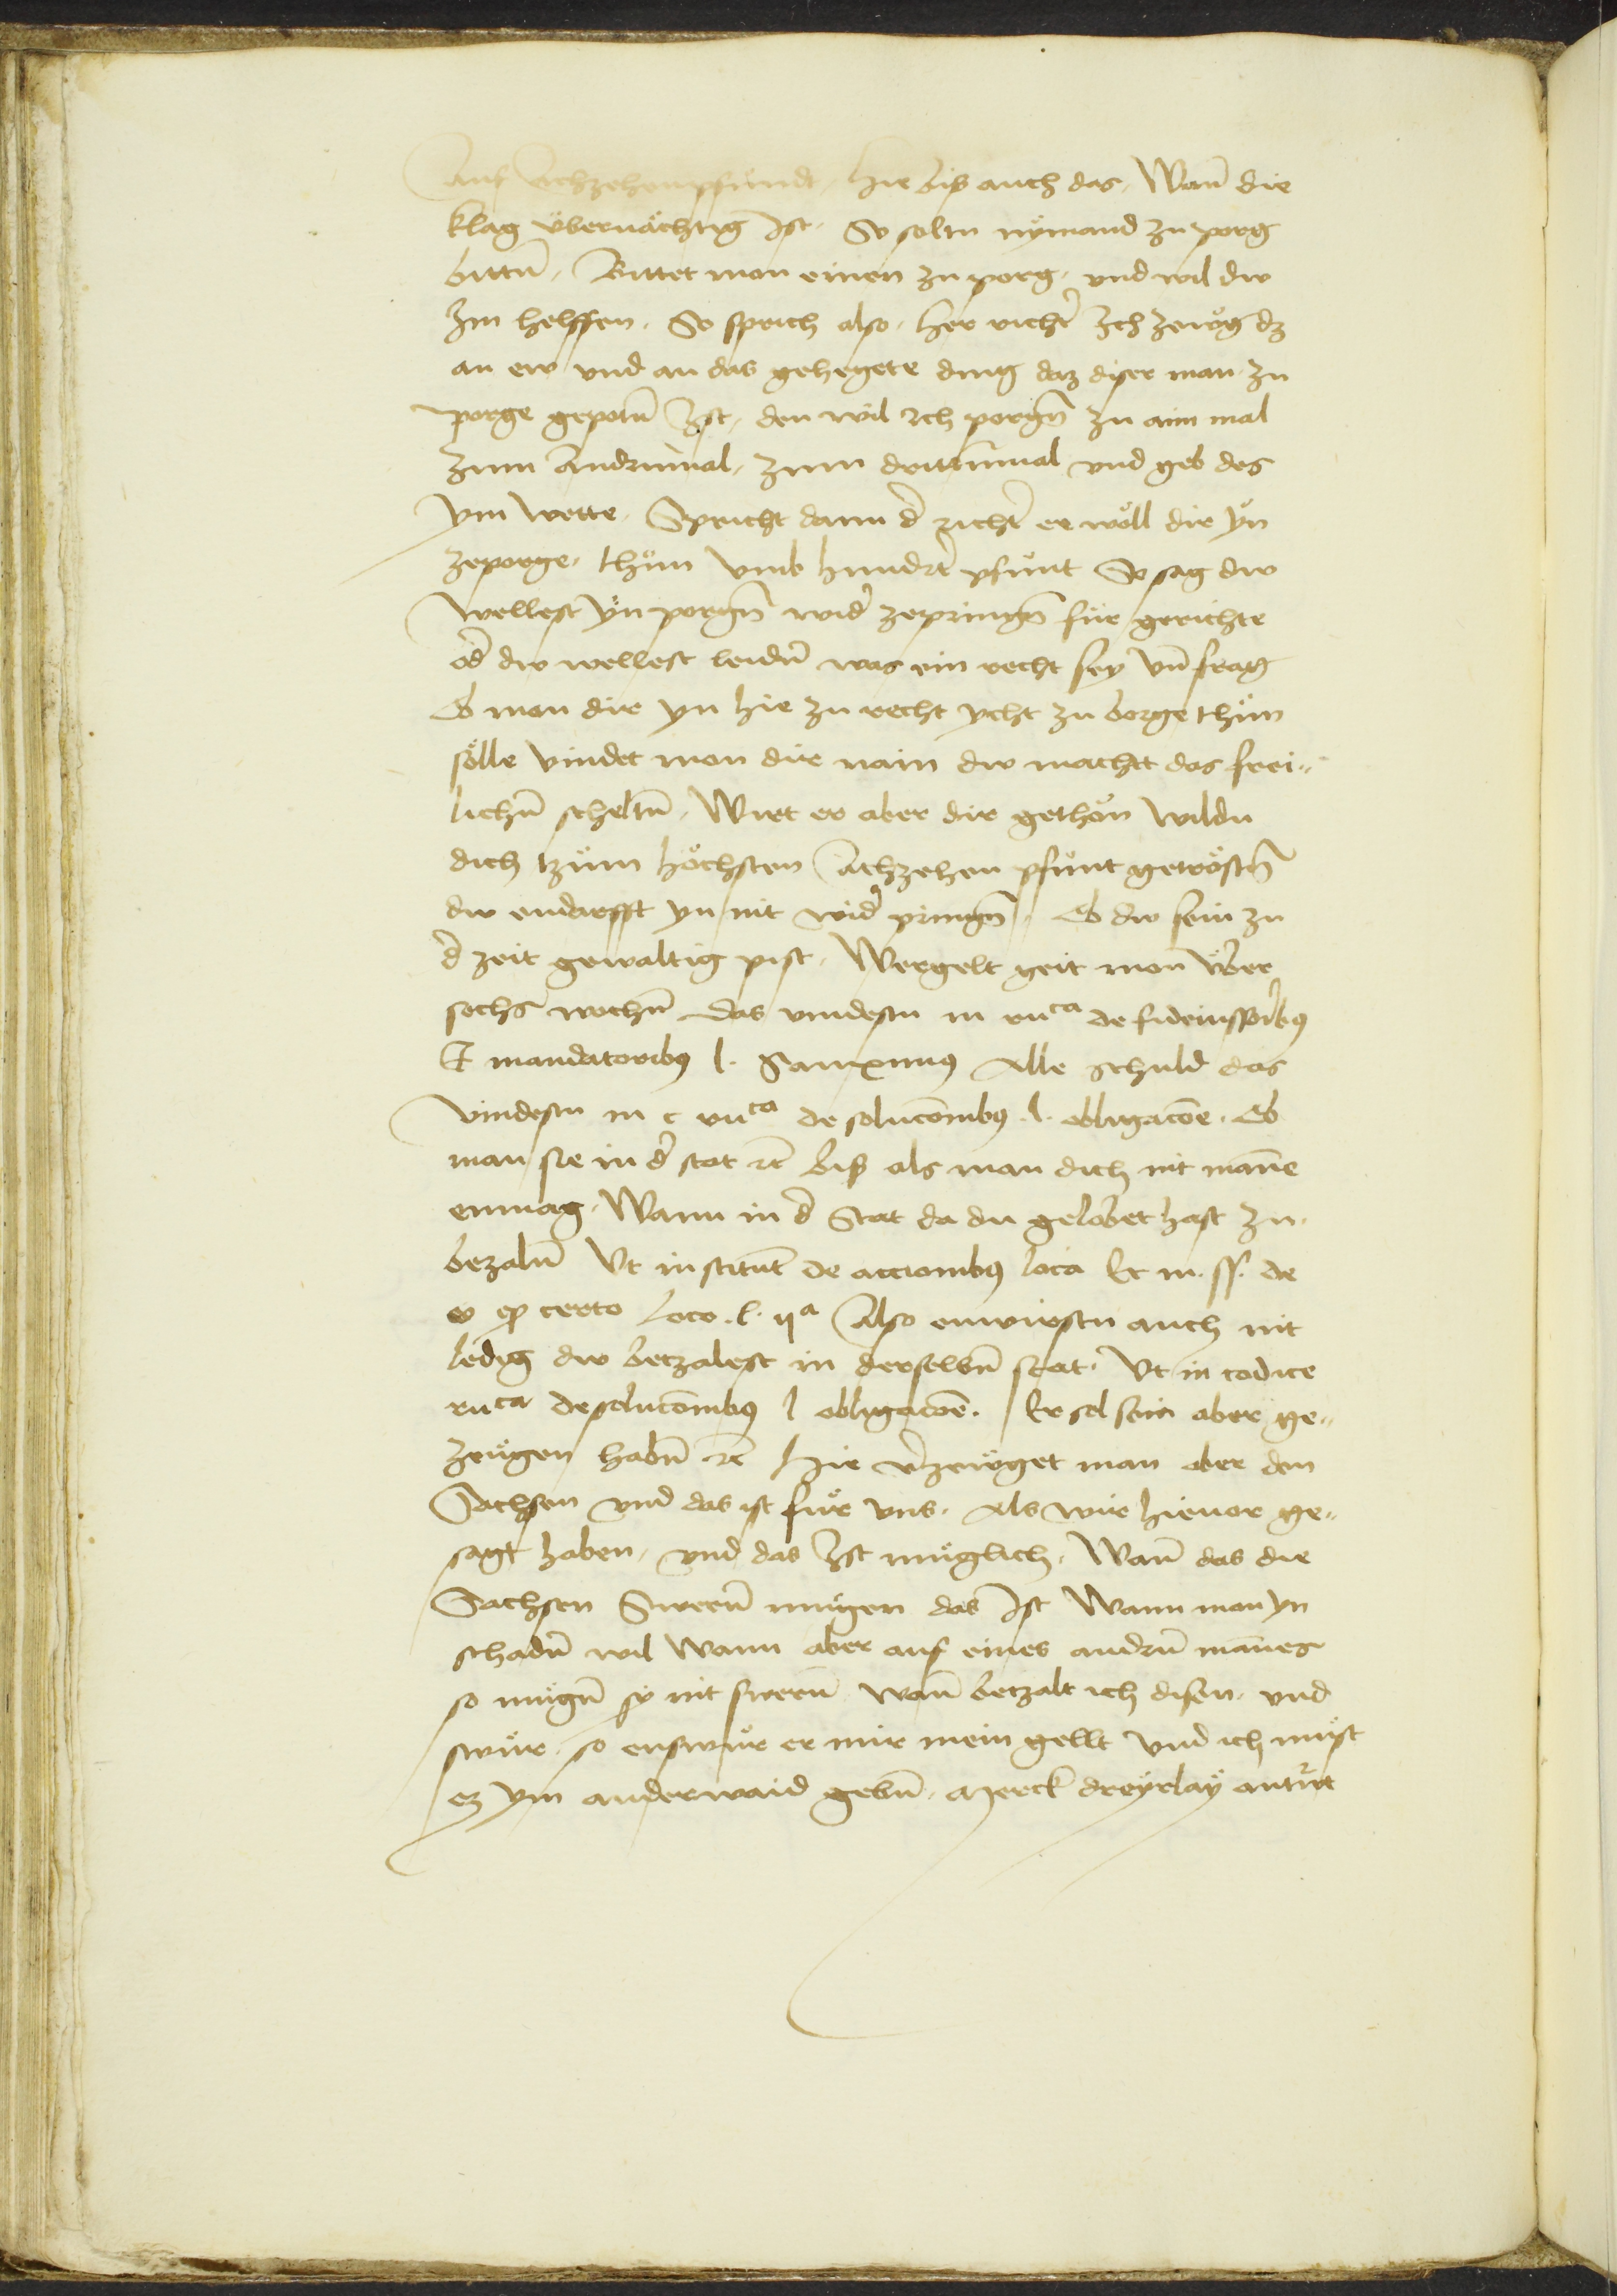 Auf Achzehenpfundt, hie biß auch das, Wañ die
klag übernächtig Ist. So soltu nÿmand zu porg
bittñ, Bittet man einen zu porg, und wil dw
Im helffen. So sprich also, her richt̃ Ich zewg dz
an ew vnd an das gehegete ding daz diser man zu
porge gepotñ Ist, den wil Ich porgñ zu aim mal
Zum Andrnmal, zum drittnmal vnd geb des
ym wette. Spricht dann d̃ richt̃ er wöll dir yn
zeporge, thün vmb hundrt̃ pfunt So sag dw
wellest yn porgñ wid̃ zepringñ für gerichte
od̃ dw wellest leidñ was ein recht sey vñ frag
Ob man dir yn hie zu recht ycht zu borge thün
sölle vindet man dir nain dw machtt das frei„
lichñ scheltñ, Wirt er aber dir gethön wildu
dich tzüm höchsten Achzehen pfunt getröstñ
dw endarfft yn nit wid̃ pringñ, Ob dw sein zu
d̃ zeit gewaltig pist, Wergelt geit man über
sechs wochñ das vindestu in ruca de fideiussoribꝫ
Et mandatoribꝫ l. Sanximꝫ Alle schuld das
vindestu in c ruca de solucõnibꝫ. l. obligacõe. Ob
man sie in d̃ stat rc̃ biß als man dich nit mañe
enmag, Wann in d̃ Stat da du gelobet hast zu
bezalñ Vt institut̃ de accionibꝫ loca Et in. ff. de
eo qͥ certo loco. l. ijª Also enwirstu auch nit
ledig dw betzalest in derselbñ stat. Vt in codice
ruca de solucõnibꝫ l obligacõe. Er sol sein aber ge„
zeugen habñ rc̃ Hie ṽzewget man aber den
Sachsen vnd das ist für vns. Als wir hieuor ge„
sagt haben, vnd das Ist müglich, Wañ das die
Sachsen Swerñ mügen das Ist Wann man yn
schadñ wil Wann aber auf eines andrñ mañes
so mügñ sÿ nit swerñ wañ betzalt ich disen, vnd
swür, so enswür er mir mein gellt vnd ich müst
ez ym anderwaid gebñ, Merck dreÿrlaÿ antw̃t